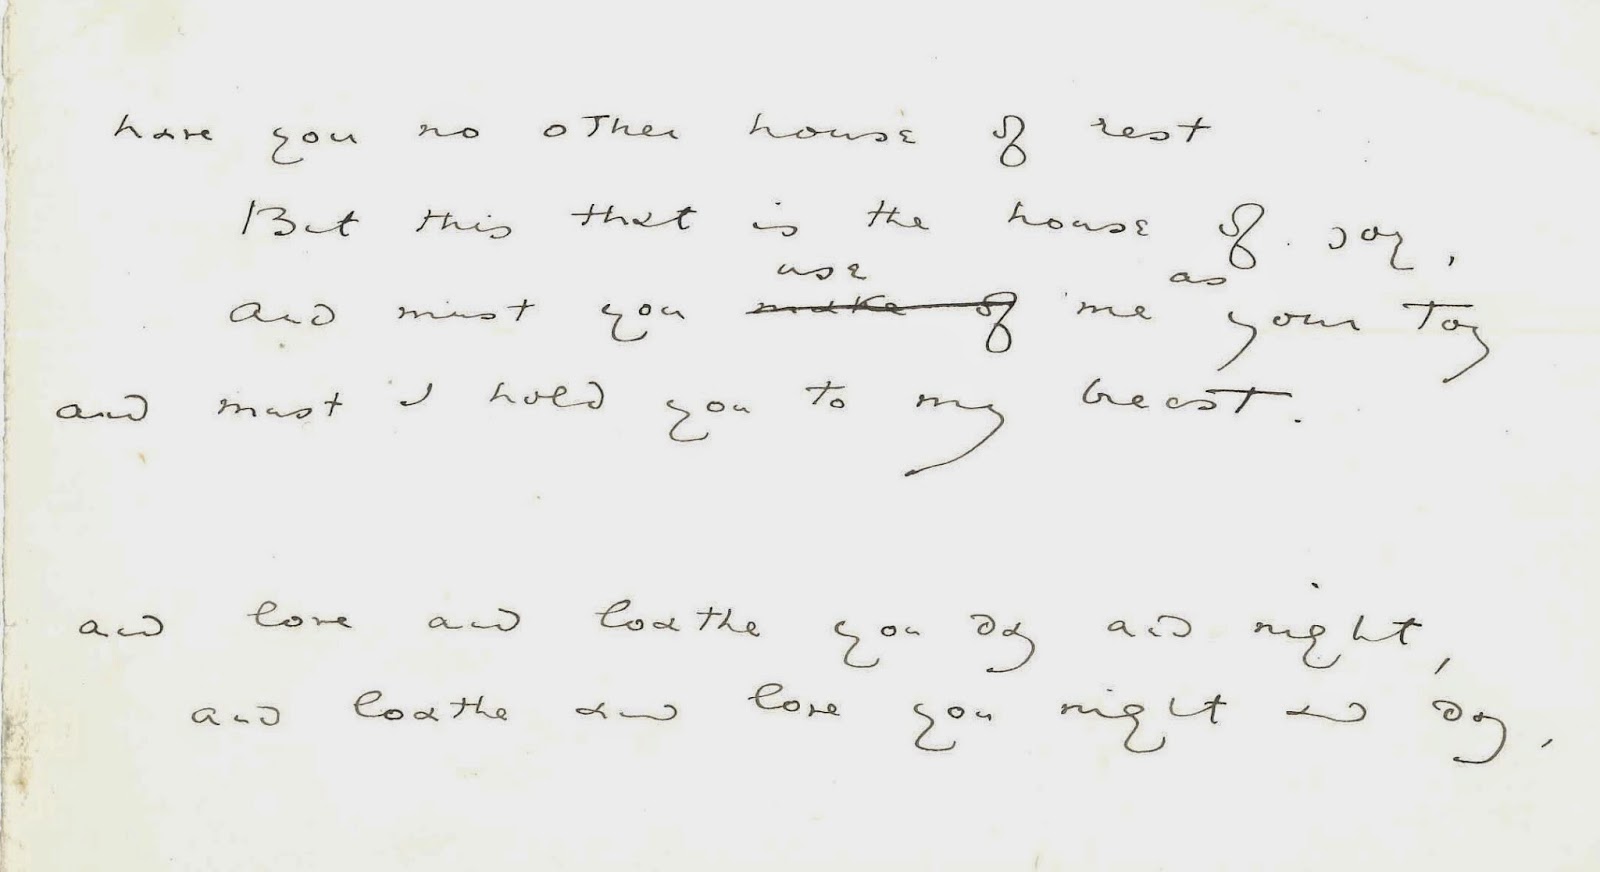 have you no other house of rest
But this that is the house of joy,
use as
And must you make of me your toy
and must I hold you to my breast.
and love and loathe you day and night,
and loathe and love you night and day,